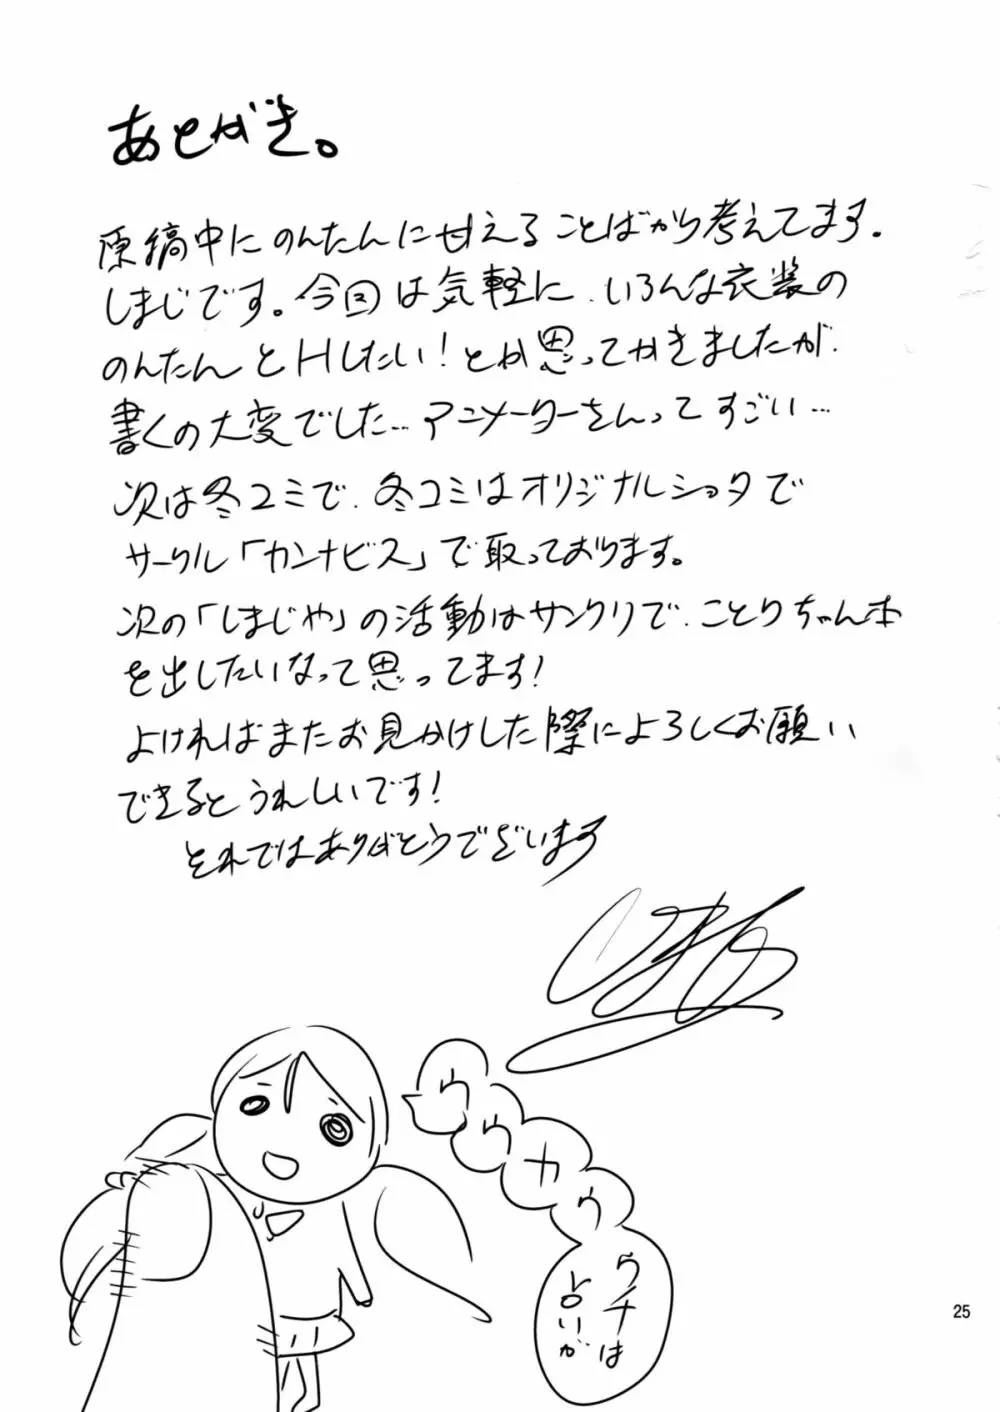 あとがき。
原稿中にのんたんに甘えることばかり考えてます。
しまじです。今回は気軽に、いろんな衣装の
のんたんとHしたい!とか思ってかきましたが、
書くの大変でした…アニメーターさんってすごい…
次は冬コミで、冬コミはオリジナルショタで
サークル「カンナビス」で取っております。
次の「しまじや」の活動はサンクリで、ことりちゃん本
を出したいなって思ってます!
よければまたお見かけした際によろしくお願い
できるとうれしいです!
それではありがとうでざいます
しまじ
ウ
ウ
カ
ウ
ウチは
占いが
25